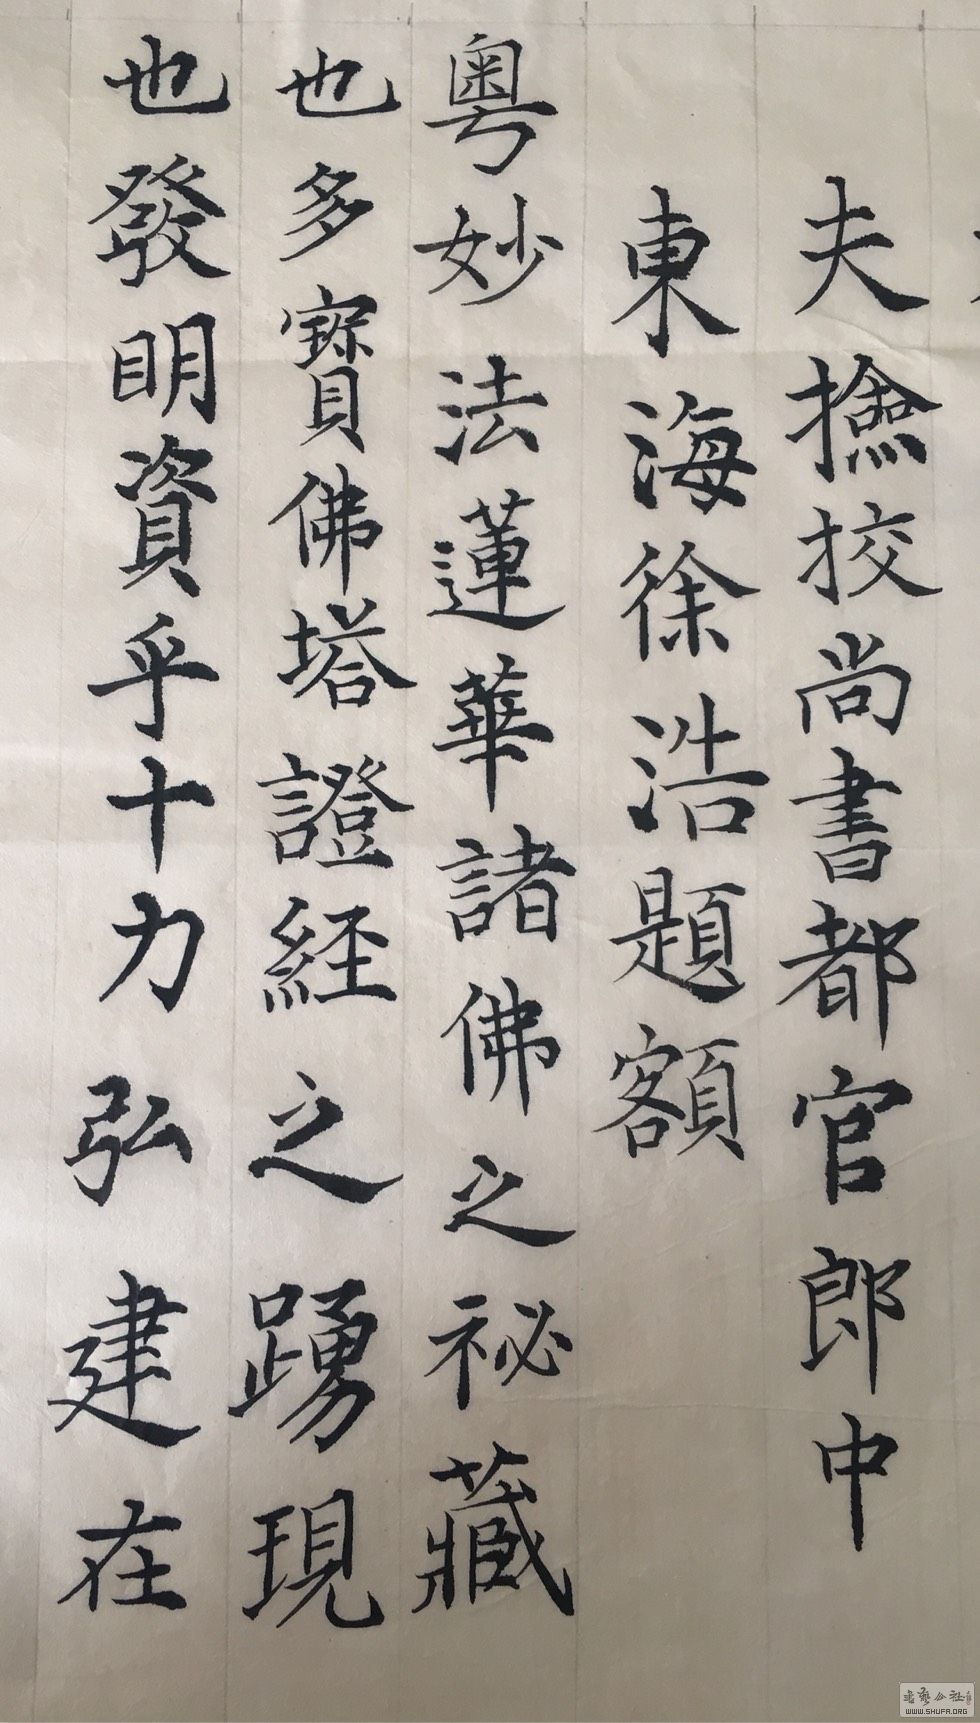 夫撿挍尚書都官郎中
東海徐浩題額
粵妙法蓮華諸佛之祕藏
也多寶佛塔證經之踴現
也發明資乎十力弘建在
WWW.SHUFA.ORG